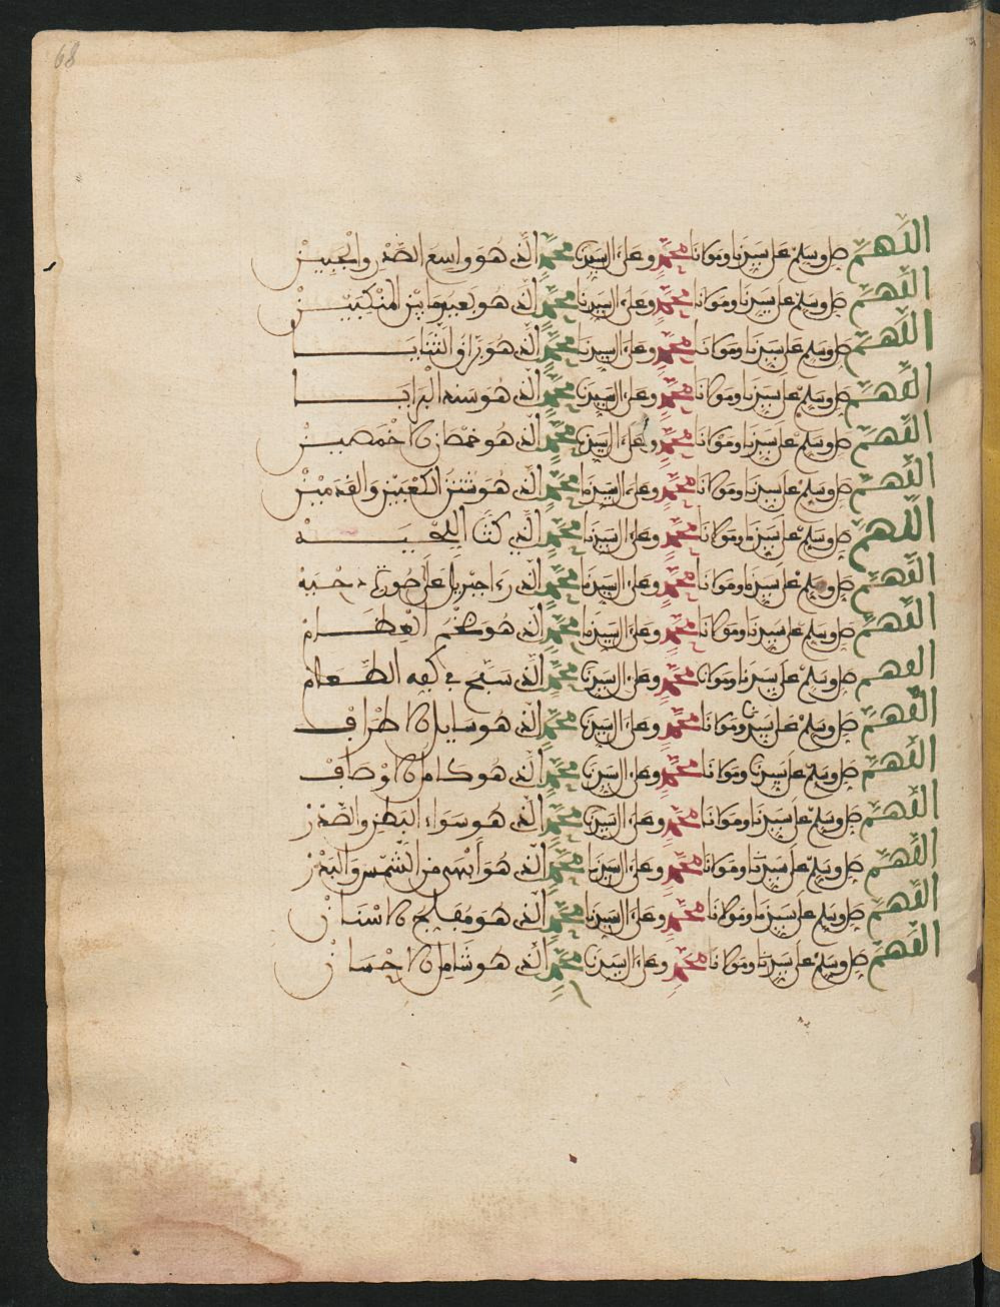 68
اللهم صل وسلم على سيدنا ومولانا محمد وعلى ءال سيدنا محمد الذي هو واسع الصدر والجبين
اللهم صل وسلم على سيدنا ومولانا محمد وعلى ءال سيدنا محمد الذي هو بعيد ما بين المنكبين
اللهم صل وسلم على سيدنا ومولانا محمد وعلى ءال سيدنا محمد الذي هو براق الثنايا
اللهم صل وسلم على سيدنا ومولانا محمد وعلى ءال سيدنا محمد الذي هو سند البرايا
اللهم صل وسلم على سيدنا ومولانا محمد وعلى ءال سيدنا محمد الذي هو خمصان الاخمصين
اللهم صل وسلم على سيدنا ومولانا محمد وعلى ءال سيدنا محمد الذي هو شثن الكعبين والقدمين
اللهم صل وسلم على سيدنا ومولانا محمد وعلى ءال سيدنا محمد الذي كث اللحية
اللهم صل وسلم على سيدنا ومولانا محمد وعلى ءال سيدنا محمد الذي رءا جبريل على صورة دحية
اللهم صل وسلم على سيدنا ومولانا محمد وعلى ءال سيدنا محمد الذي هو ضخم العظام
اللهم صل وسلم على سيدنا ومولانا محمد وعلى ءال سيدنا محمد الذي سبح في كفه الطعام
اللهم صل وسلم على سيدنا ومولانا محمد وعلى ءال سيدنا محمد الذي هو سايل الاطراف
اللهم صل وسلم على سيدنا ومولانا محمد وعلى ءال سيدنا محمد الذي هو كامل الاوصاف
اللهم صل وسلم على سيدنا ومولانا محمد وعلى ءال سيدنا محمد الذي هو سواء البطن والصدر
اللهم صل وسلم على سيدنا ومولانا محمد وعلى ءال سيدنا محمد الذي هو أبهى من الشمس والبدر
اللهم صل وسلم على سيدنا ومولانا محمد وعلى ءال سيدنا محمد الذي هو مفلج الاسنان
اللهم صل وسلم على سيدنا ومولانا محمد وعلى ءال سيدنا محمد الذي هو شامل الاحسان